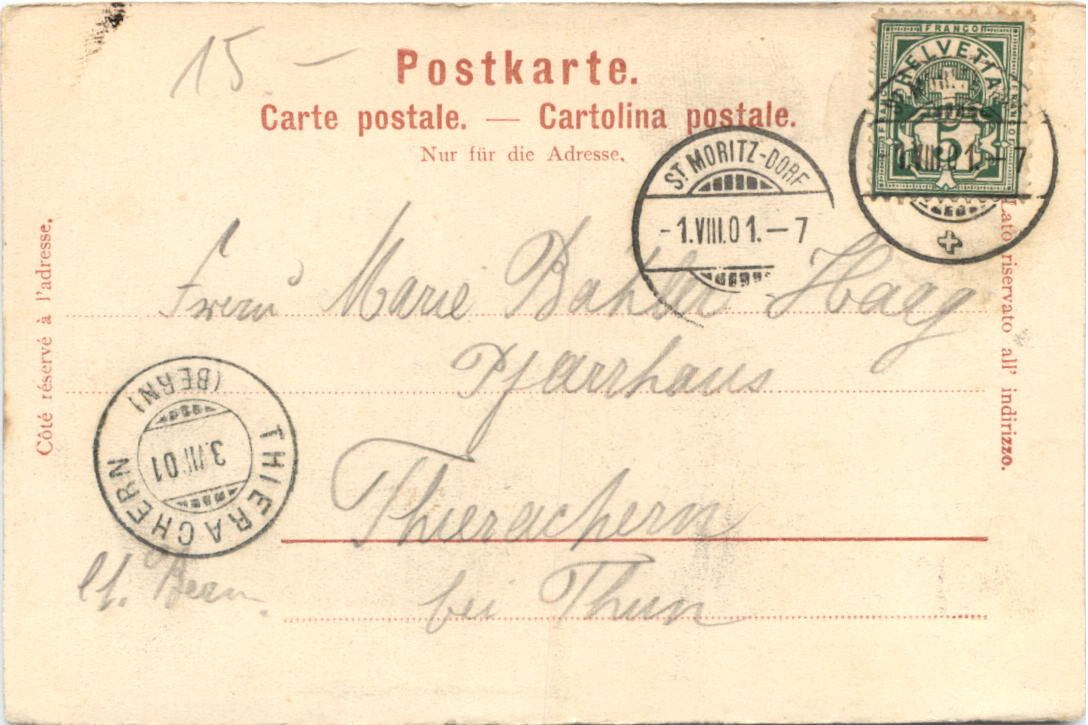 15.-
Postkarte.
Carte postale. — Cartolina postale.
Nur für die Adresse.
FRANCO
HELVETIA
5
1.VIII.01.-7
ST MORITZ-DORF
-1.VIII.01.-7
Côté réservé à l'adresse.
Lato riservato all' indirizzo.
Marie Bahler Haag
Pfarrhaus
THIERACHERN
(BERN)
3.VIII.01
Thierachern
Ct. Bern.
bei Thun